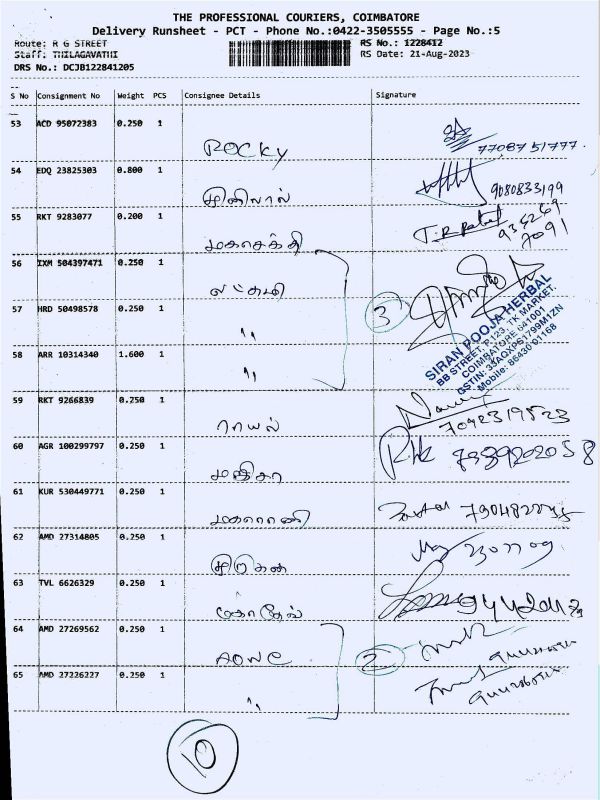 THE PROFESSIONAL COURIERS, COIMBATORE
Delivery Runsheet - PCT - Phone No.:0422-3505555 - Page No.:5
Route: R G STREET
RS No.: 1228412
Staff: THILAGAVATHI
RS Date: 21-Aug-2023
DRS No.: DCJB122841205
S No Consignment No Weight PCS Consignee Details Signature
53 ACD 95072383 0.250 1
ROCKY
77087 51777.
54 EDQ 23825303 0.800 1
9080833199
55 RKT 9283077 0.200 1
மகாசக்தி
56 IXM 504397471 0.250 1
லட்சுமி
57 HRD 50498578 0.250 1
"
3
SIRAN POOJA HERBAL
BB STREET, P.123, TK MARKET,
COIMBATORE 641001.
GSTIN: 33AQXPS1799M1ZN
Mobile: 86430 01168
58 ARR 10314340 1.600 1
"
59 RKT 9266839 0.250 1
ராயல்
60 AGR 100299797 0.250 1
61 KUR 530449771 0.250 1
மகாராணி
62 AMD 27314805 0.250 1
63 TVL 6626329 0.250 1
64 AMD 27269562 0.250 1
AONE
2
65 AMD 27226227 0.250 1
"
10